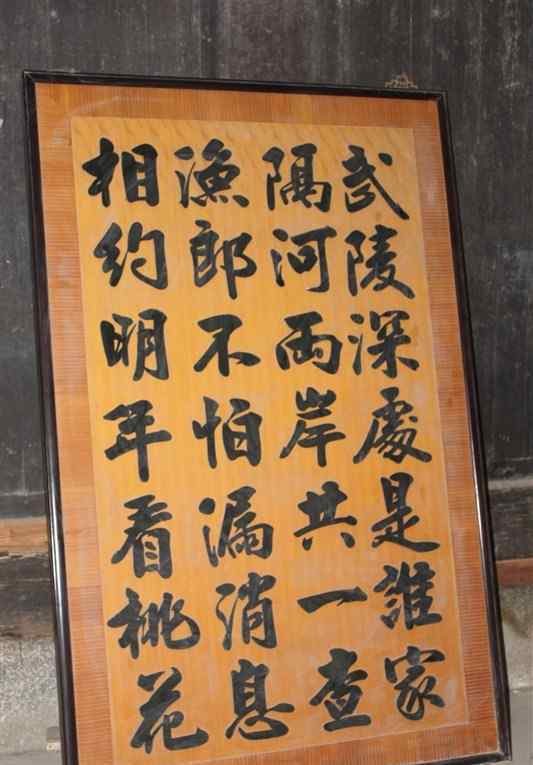 武陵深處是誰家
隔河两岸共一查
漁郎不怕漏消息
相約明年看桃花